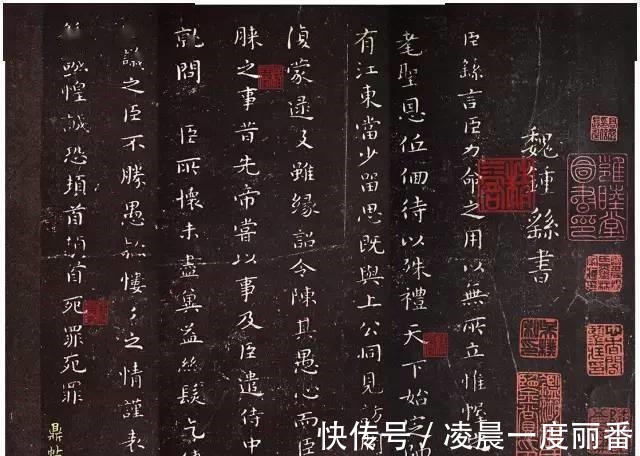 魏鍾繇書
臣繇言臣力命之用以無所立惟幄
耄聖恩低佪待以殊禮天下始定師
有江東當少留思既與上公同見訪問
復蒙逮及雖緣詔令陳其愚心而臣
之事昔先帝嘗以事及臣遣侍中
就問 臣所懷未盡冀益絲髮乞使
議之臣不勝愚款慺々之情謹表
惶誠恐頓首頓首死罪死罪
鼎帖
快传号/凌晨一度丽番